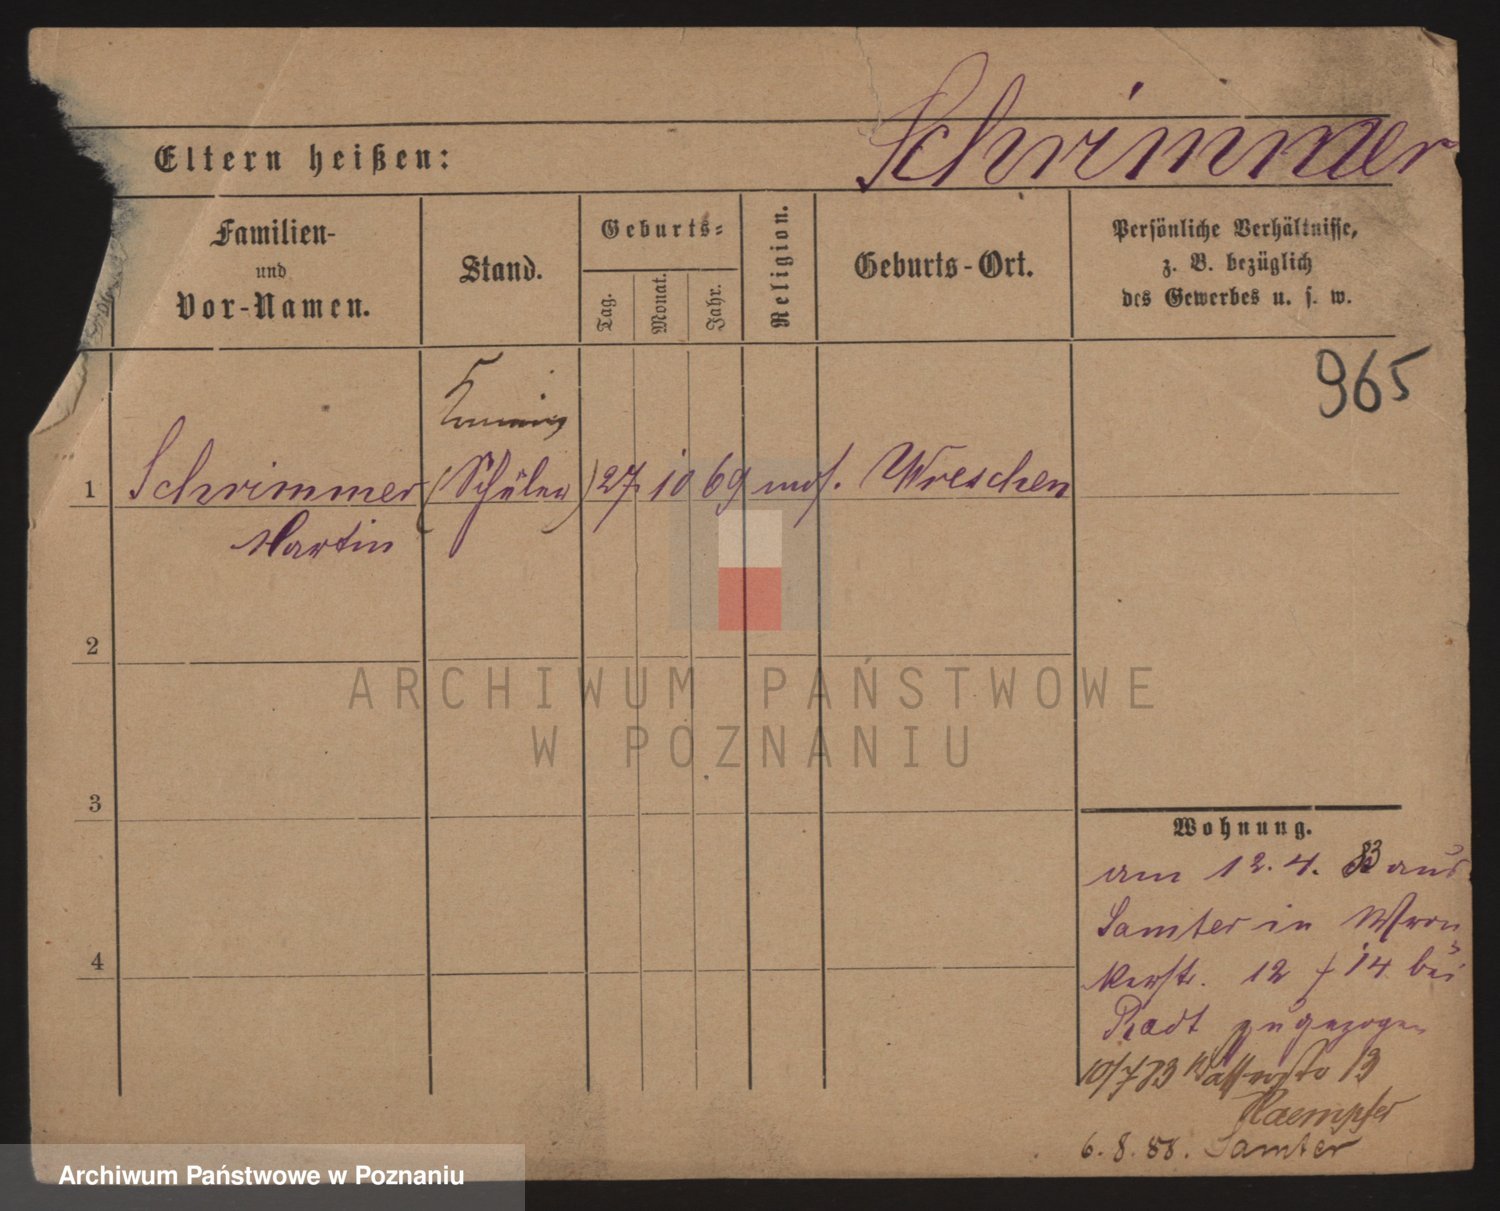 Schrimmer
Eltern heißen:
Familien-
und
Vor-Namen.
Stand.
Geburts-
Tag.
Monat.
Jahr.
Religion.
Geburts-Ort.
Persönliche Verhältnisse,
z. B. bezüglich
des Gewerbes u. s. w.
965
1
Schrimmer (Schüler) 27 10 69 mos. Wreschen
Martin
2
3
4
Wohnung.
am 12.4. 83 aus
Samter in Wron
kerstr. 12 / 14 bei
Radt zugezogen
10/7 83 Wasserstr 13
Kaempfer
6.8.88. Samter
ARCHIWUM PAŃSTWOWE
W POZNANIU
Archiwum Państwowe w Poznaniu